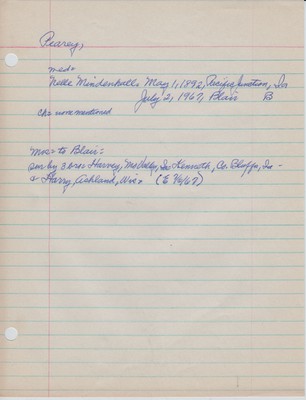 Pearey,
med=
Nelle Mindenhall, May 1, 1892, Pacific Junction, Ia
July 2, 1967, Blair B
ch= none mentioned
Mos= to Blair=
sur by 3 bros Harvey, McNally, Ia Kenneth, Co. Bluffs, Ia -
& Harry, Ashland, Wis= (E 7/6/67)